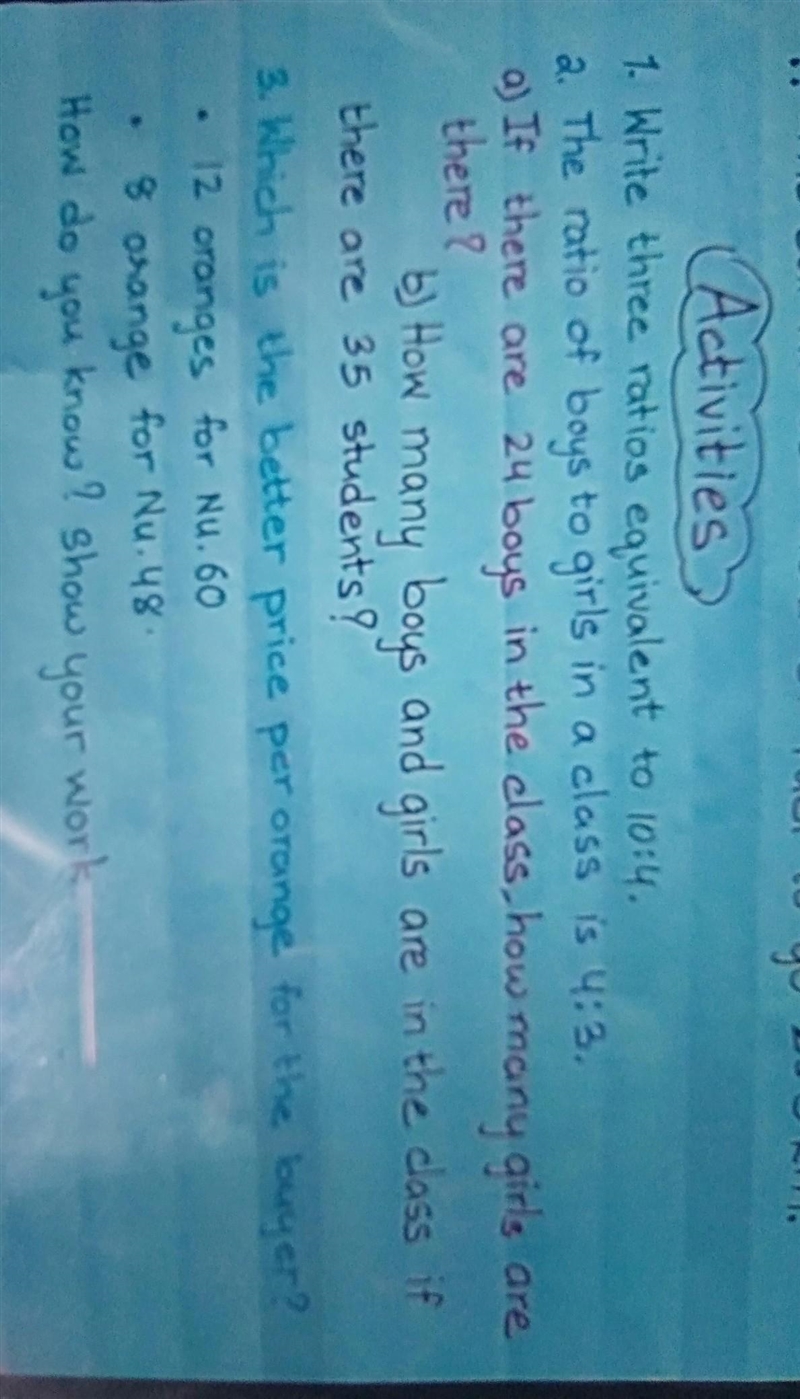 Activities
1. Write three ratios equivalent to 10:4.
2. The ratio of boys to girls in a class is 4:3.
a) If there are 24 boys in the class, how many girls are
there?
b) How many boys and girls are in the class if
there are 35 students?
3. Which is the better price per orange for the buyer?
• 12 oranges for Nu. 60
• 8 orange for Nu. 48.
How do you know? show your work.